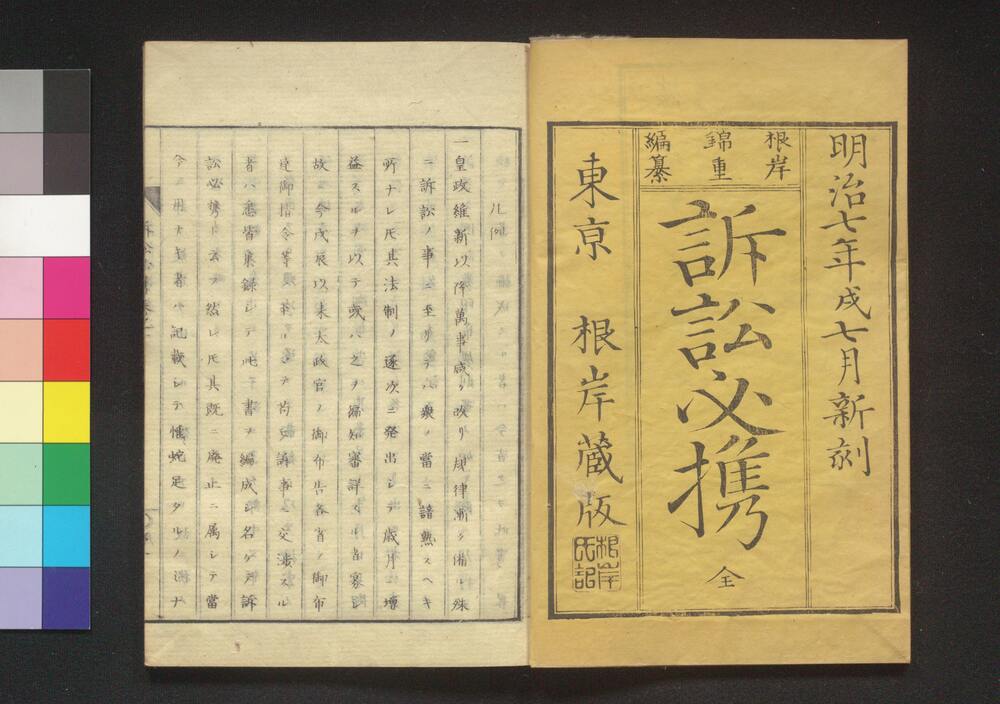 明治七年戌七月新刻
根岸
錦重
編纂
訴訟必携 全
東京 根岸蔵版
根岸氏記
凡例
一皇政維新以降萬事咸ク改リ規律漸ク備ル殊
ニ訴訟ノ事ニ至リテハ衆ノ當ニ諳熟スヘキ
所ナレ𪜈其法制ノ逐次ニ発出シテ歳月ニ増
益スルヲ以テ或ハ之ヲ徧知審詳スル者寡シ
故ニ今戊辰以来太政官ノ御布告各省ノ御布
達御指令等ニ至ルマテ苟モ訴事ニ交渉スル
者ハ悉皆集録シテ此書ヲ編成シ名ケテ訴
訟必携ト云フ然レ𪜈其既ニ廃止ニ属シテ當
今ニ用ナキ者ハ記載シテ蛇足タルノ